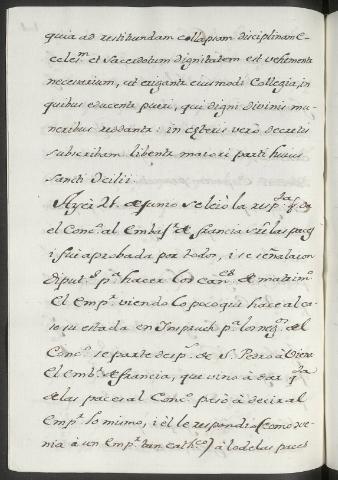 quia ad restituendam collapsam disciplinam E-
celes.m et sacerdotum dignitatem est vehementer
necessarium, ut erigantur eiusmodi Collegia, in
quibus educentur pueri, qui digni divinis mu-
neribus reddantur: in ceteris vero decretis
subscribam libenter maiori parti huius
sancti Concilii.
Ayer 21. de Junio se leiò la resp.ta q. da
el Conc.o al Embax.r de francia sre las paces
i fuè aprobada por todos, i se señalaron
diput.s p.a hacer los can.es de matrim.o
El Emp.r viendo lo poco qui hace al ca-
so su estada en Inspruch p.a los neg.os del
Conc.o se parte desp.s de S. Pedro à Viena
El emb.r de francia, que vino à dar q.ta
de las paces al Conc.o pasò à decir al
Emp.r lo mismo, i èl le respondiò (como ve-
nia à un Emp.r tan cath.co) à lo de las paces